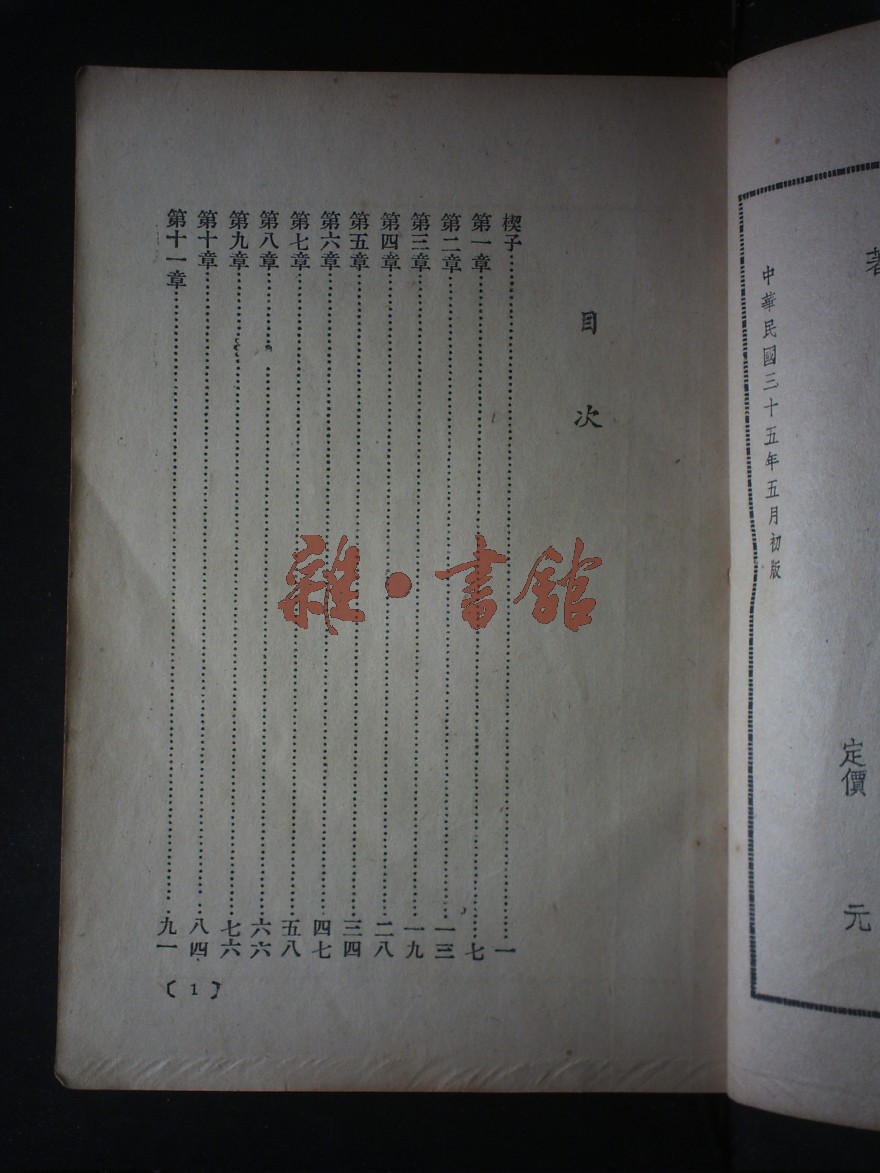 中華民國三十五年五月初版
著
定價　元
目次
楔子……一
第一章……七
第二章……一三
第三章……一九
第四章……二八
第五章……三四
第六章……四七
第七章……五八
第八章……六六
第九章……七六
第十章……八四
第十一章……九一
〔1〕
雜·書館